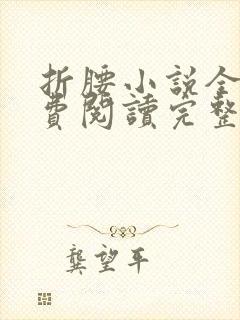 折腰小說全
費閱讀完整
龔望平